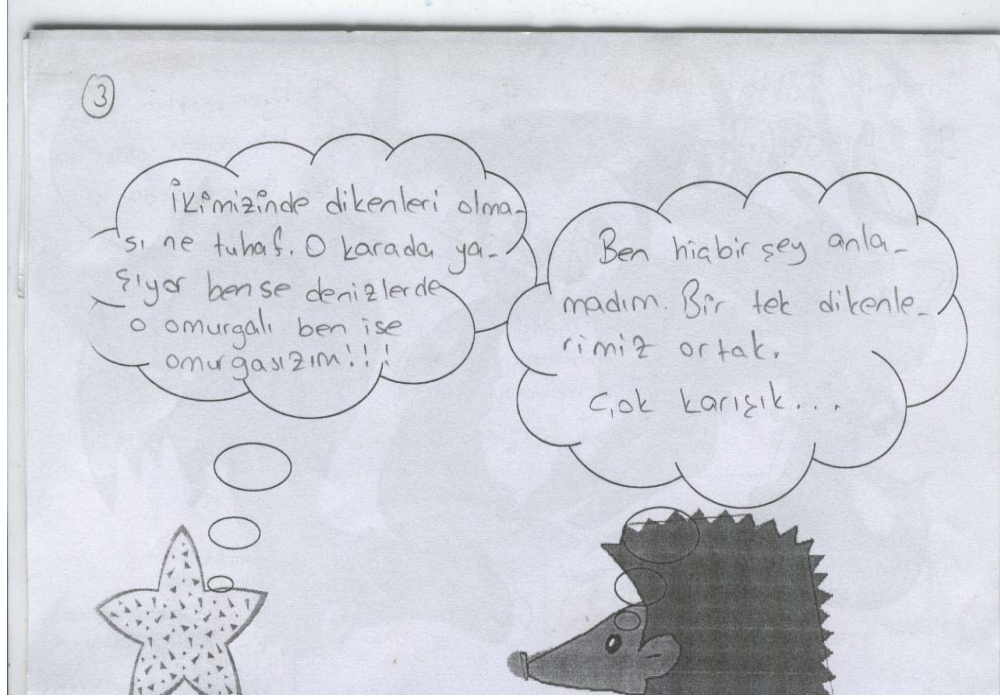 3
İkimizinde dikenleri olma-
sı ne tuhaf. O karada ya-
şıyor bense denizlerde
o omurgalı ben ise
omurgasızım!!!
Ben hiçbir şey anla-
madım. Bir tek dikenle-
rimiz ortak.
Çok karışık...